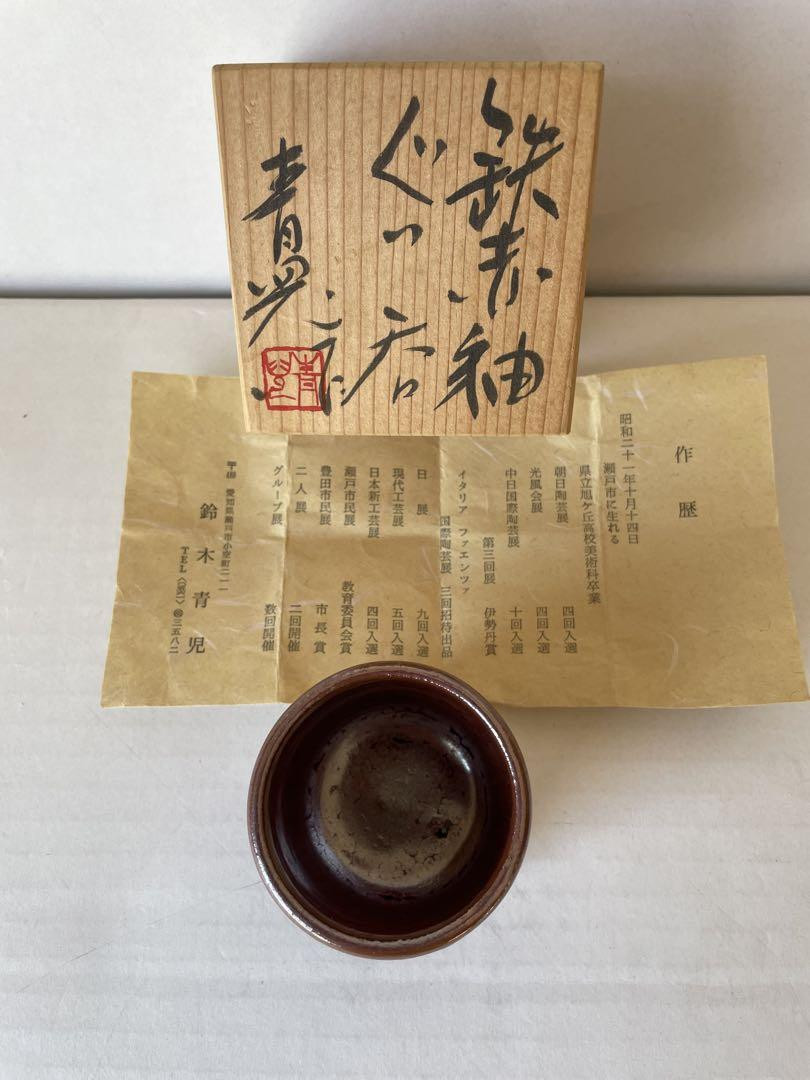 鉄赤釉
ぐっ呑
青児
作歴
昭和二十一年十月十四日
瀬戸市に生れる
県立旭ケ丘高校美術科卒業
朝日陶芸展 四回入選
光風会展 四回入選
中日国際陶芸展 十回入選
第三回展 伊勢丹賞
イタリア ファエンツァ
国際陶芸展 三回招待出品
日展 九回入選
現代工芸展 五回入選
日本新工芸展 四回入選
瀬戸市民展 教育委員会賞
豊田市民展 市長賞
二人展 二回開催
グループ展 数回開催
愛知県瀬戸市小空町
鈴木青児
TEL 三五八二